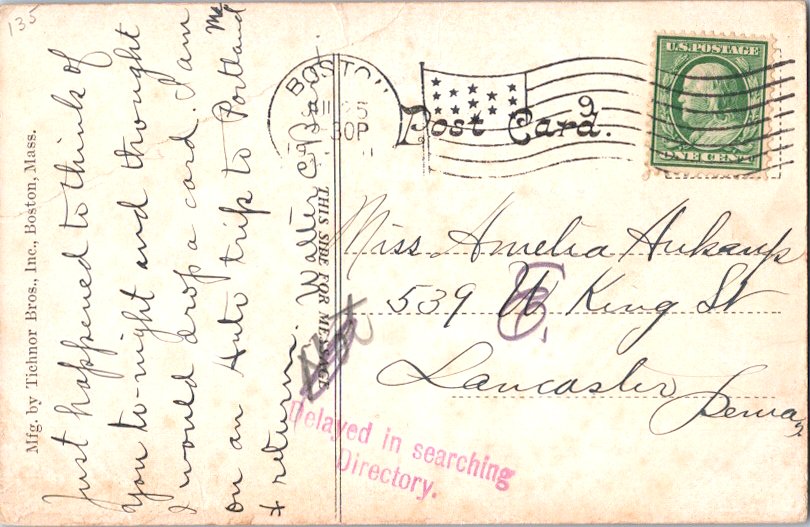 135
Mfg. by Tichnor Bros., Inc., Boston, Mass.
Just happened to think of
you to-night and thought
I would drop a card. I am
on an Auto trip to Portland Me
& return. Walter C. Barr.
THIS SIDE FOR MESSAGE
BOSTON
30P
Post Card.
9
U.S. POSTAGE
ONE CENT
Miss Amelia Aukamp
539 W King St
E.
Lancaster
Penna
Delayed in searching
Directory.